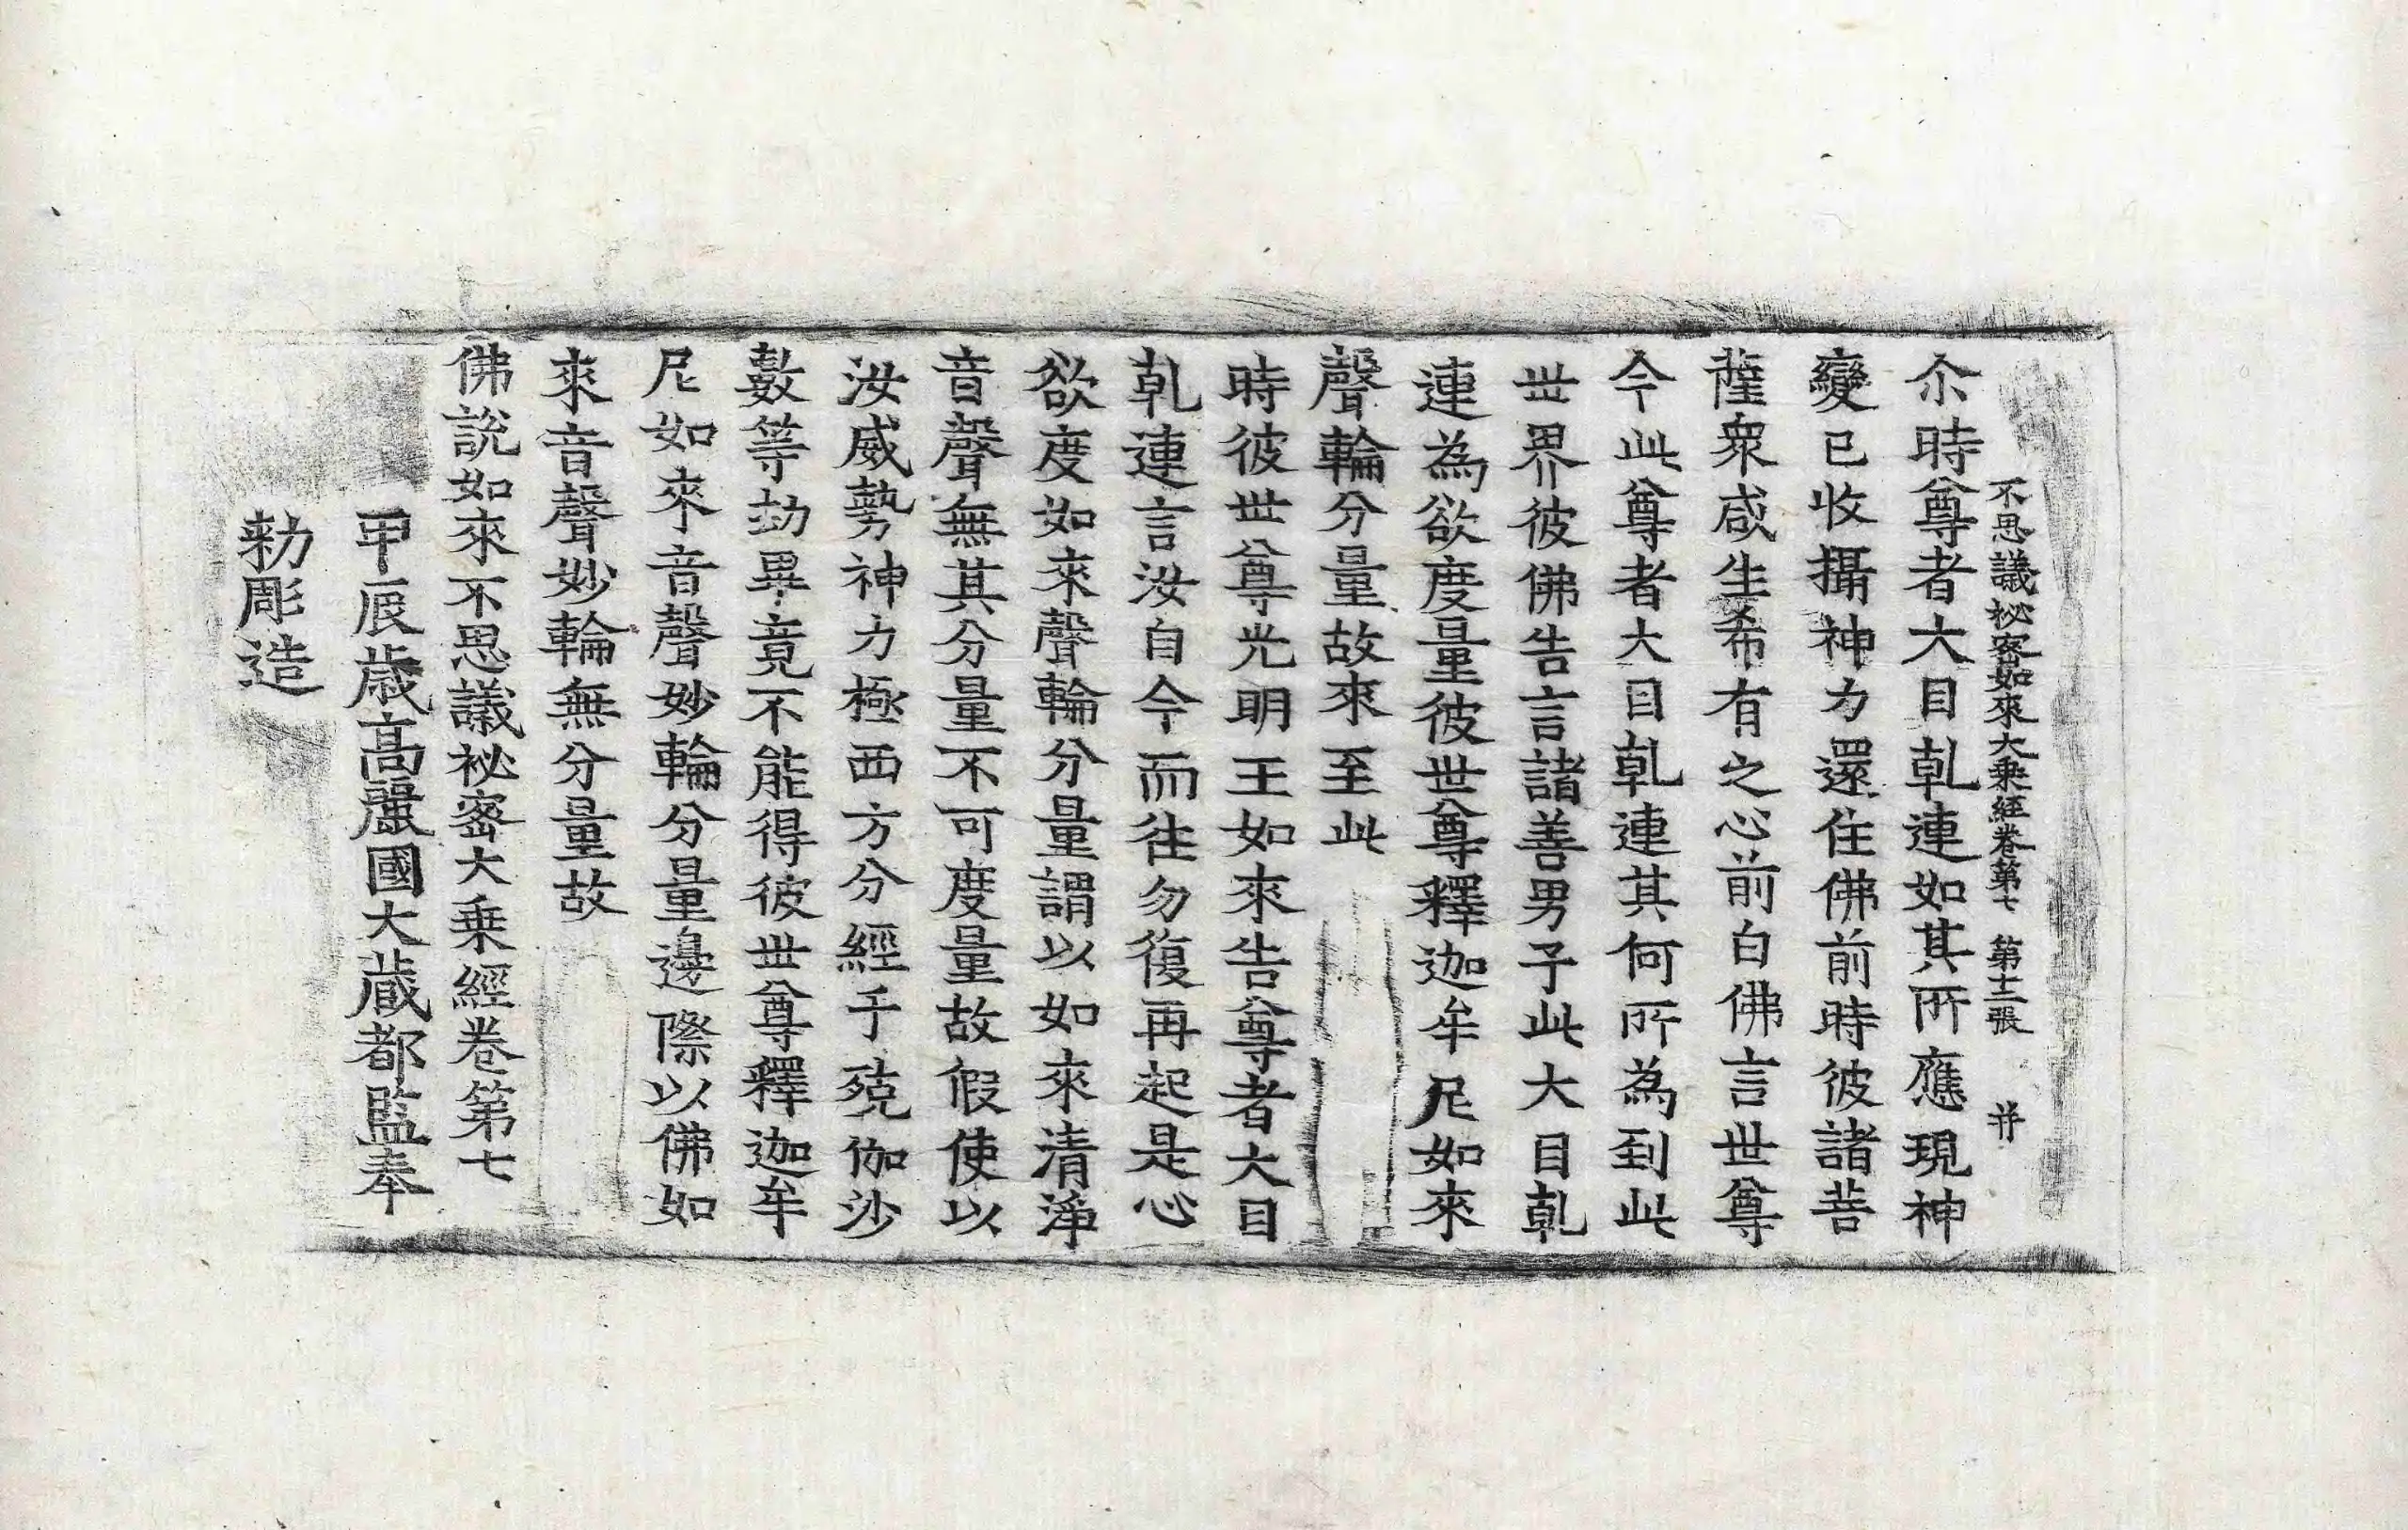 不思議祕密如來大乘經卷第七 第十二張 井
尒時尊者大目乹連如其所應現神
變已收攝神力還住佛前時彼諸菩
薩衆咸生希有之心前白佛言世尊
今此尊者大目乹連其何所為到此
世界彼佛告言諸善男子此大目乹
連為欲度量彼世尊釋迦牟尼如來
聲輪分量故來至此
時彼世尊光明王如來告尊者大目
乹連言汝自今而往勿復再起是心
欲度如來聲輪分量謂以如來清淨
音聲無其分量不可度量故假使以
汝威勢神力極西方分經于殑伽沙
數等劫畢竟不能得彼世尊釋迦牟
尼如來音聲妙輪分量邊際以佛如
來音聲妙輪無分量故
佛說如來不思議祕密大乘經卷第七
甲辰歲高麗國大藏都監奉
勑彫造